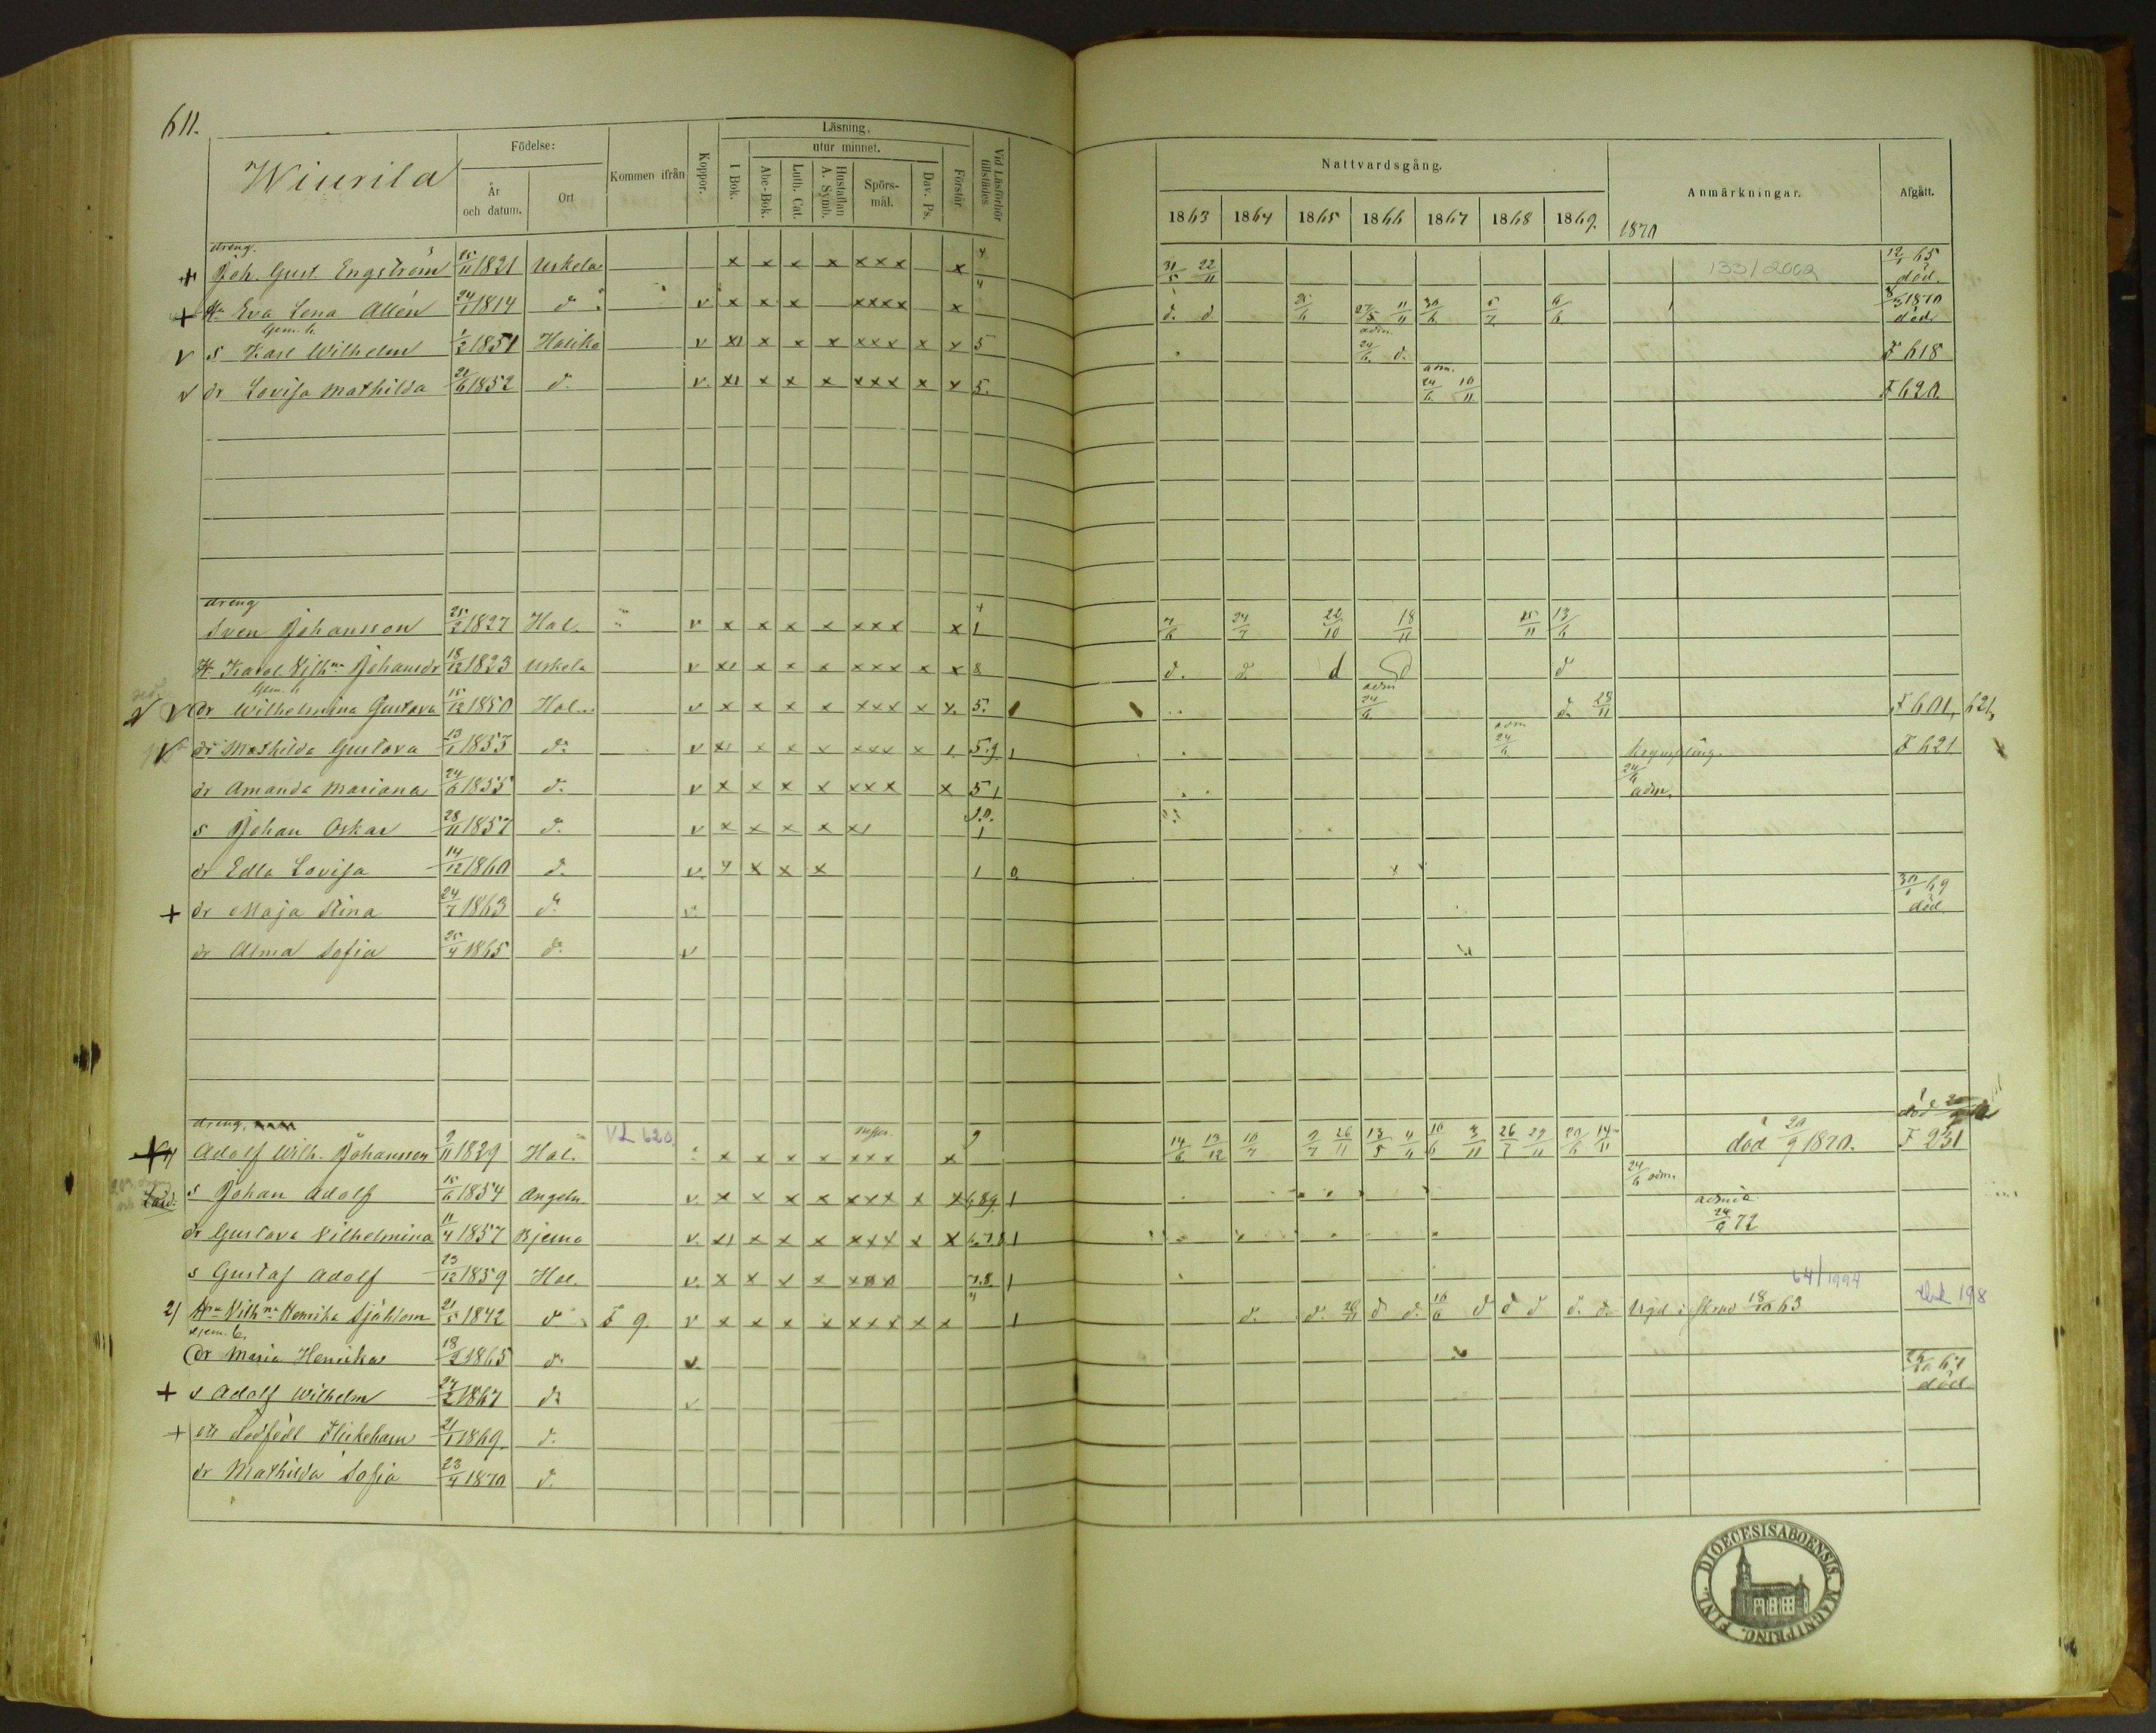 611.
Wiurila
Födelse:
År och datum.
Ort
Kommen ifrån
Koppor.
Läsning.
utur minnet.
I Bok.
Abc-Bok.
Luth. Cat.
Hustaflan A. Symb.
Spörsmål.
Dav. Ps.
Förstår
Vid Läsförhör tillstädes
Nattvardsgång.
1863 1864 1865 1866 1867 1868 1869. 1870
Anmärkningar.
Afgått.
dreng.
Joh. Gust. Engström 15/11 1821 Uskela x x x x xxx x 4 31/5 22/11 133/2002 12/1 65 död.
Eva Lena Allén 24/7 1814 d:o v x x x xxxx x d. d. 11/11 30/6 5/7 6/6 1870 död
Gem. h.
v s Karl Wilhelm 1/2 1851 Haliko v x x x x xxx x x 5 adm. 24/6 d. F 618
v dr Lovisa Mathilda 21/6 1852 d. v. x x x x xxx x x 5. adm. 24/6 10/11 F 620.
dreng
Sven Johansson 25/2 1827 Hal. v x x x x xxx x 1 7/6 24/7 22/10 18/11 25/11 13/6
H. Karol. Vilh:na Johansdr 18/12 1823 Uskela v x x x x xxx x x 8 d. d. d d d
Gem. h
v dr Wilhelmina Gustava 15/12 1850 Hal. v x x x x xxx x x. 5. adm 24/6 d. 28/11 F 601, 621,
v dr Mathilda Gustava 13/1 1853 d:o v x x x x xxx x 5.9 1 adm 24/6 F 621
dr Amanda Mariana 24/6 1855 d. v x x x x xxx x 5 1 24/6 adm.
s Johan Oskar 28/11 1857 d. v x x x x x 1
dr Edla Lovisa 14/12 1860 d. v. x x x x 1 0
+ dr Maja Stina 24/7 1863 d. v. 30/1 69 död
dr Alma Sofia 25/4 1865 d. v
dreng,
Adolf Wilh. Johansson 9/11 1829 Hal. VL 620. x x x x xxx x 9 14/6 13/12 10/7 9/7 26/11 13/5 4/11 10/6 3/11 26/7 29/11 20/6 14/11 död 20/9 1870. F 231
s Johan Adolf 15/6 1854 Angeln. v. x x x x xxx x x 6.8.9. 1 24/6 adm.
dr Gustava Vilhelmina 11/4 1857 Bjerno v. x x x x xxx x x 6.7.8 1 24/6 72
s Gustaf Adolf 23/12 1859 Hal. v. x x x x xxx 7.8. 1 64/1994
2) Vilh:na Henrika Sjöblom 21/5 1842 d. F 9. v x x x x xxx x x 1 d. d. 26/11 d d. 10/6 d d d d. d. 18/10 63 198
dr Maria Henrika 18/2 1865 d. v.
+ s Adolf Wilhelm 27/2 1867 d:o v 67 död
+ ett dödfödt Flickebarn 21/1 1869. d.
dr Mathilda Sofia 23/4 1870 d.
DIOECESIS ABOENSIS. MAGNI PRINC. FINL.